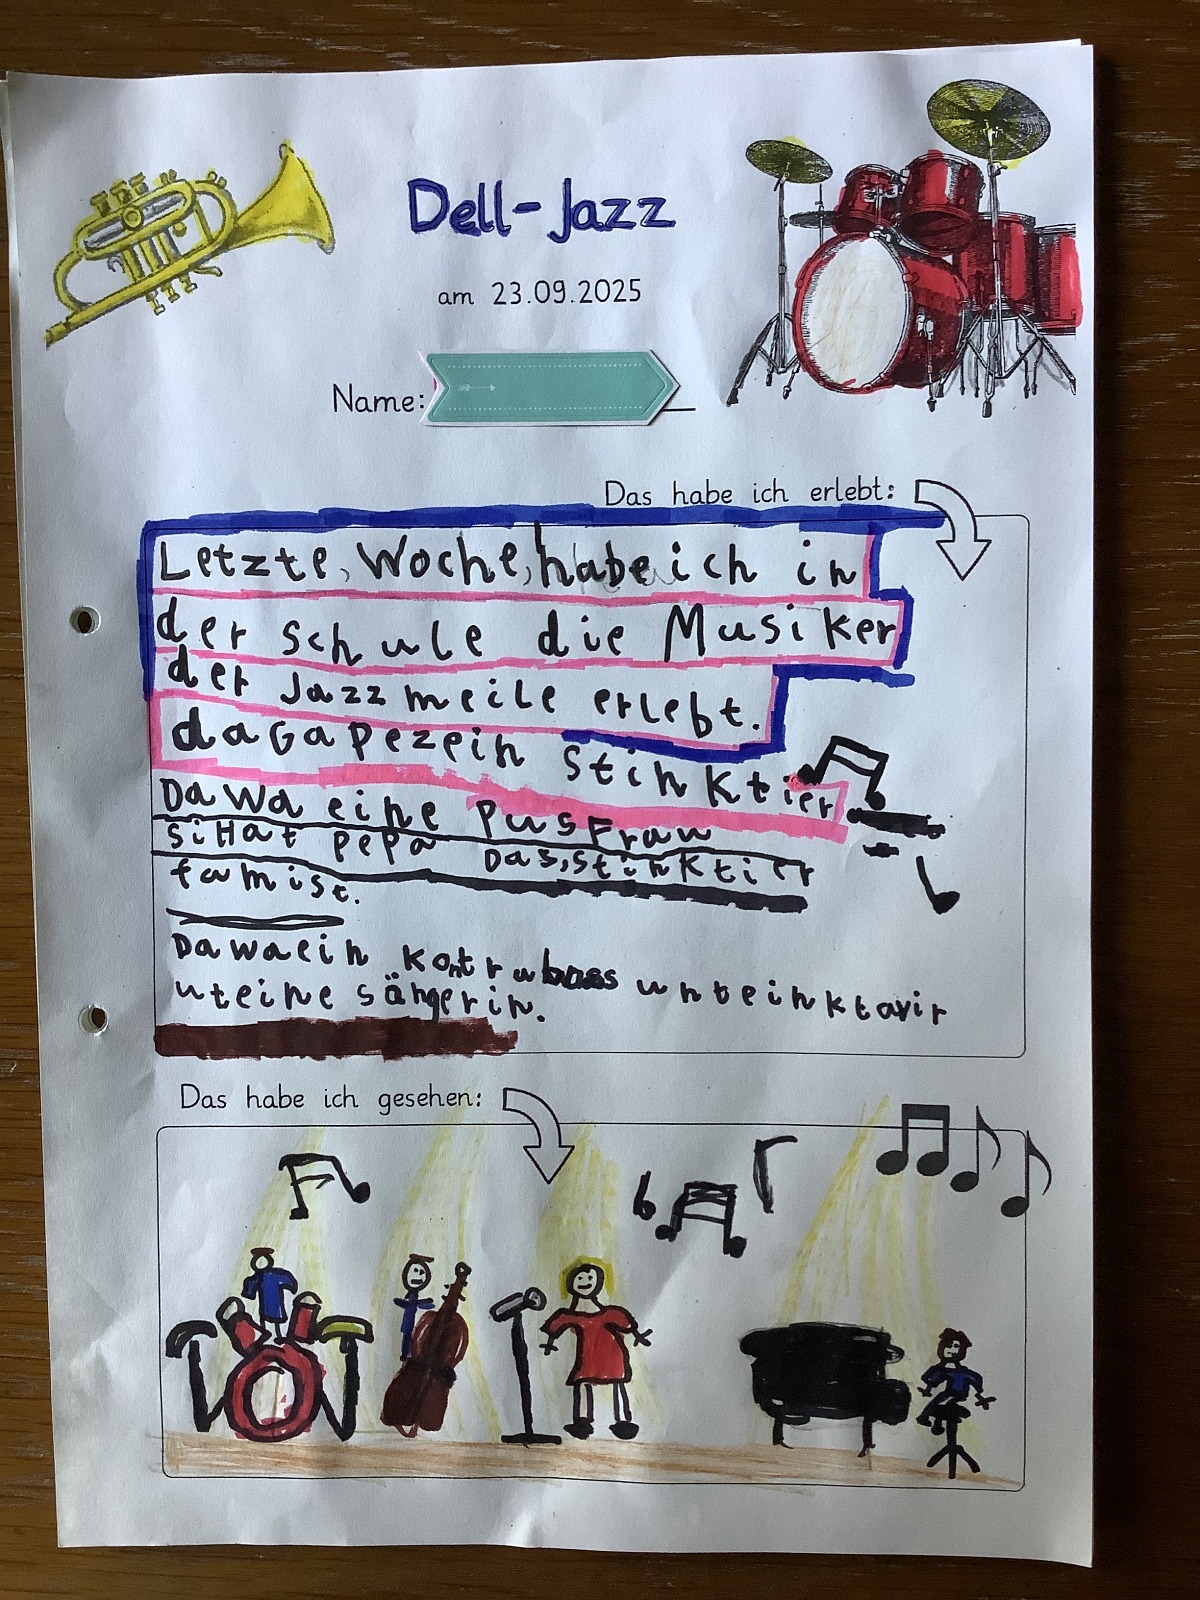 Dell-Jazz
am 23.09.2025
Name:
Das habe ich erlebt:
Letzte, Woche, habe ich in
der schule die Musiker
der Jazzmeile erlebt.
dagapezein Stinktier
Dawa eine Pusfrau
siHat pepa Das, Stinktier
famist.
Dawaein Kontrubass unteinklavir
uteine sängerin.
Das habe ich gesehen: